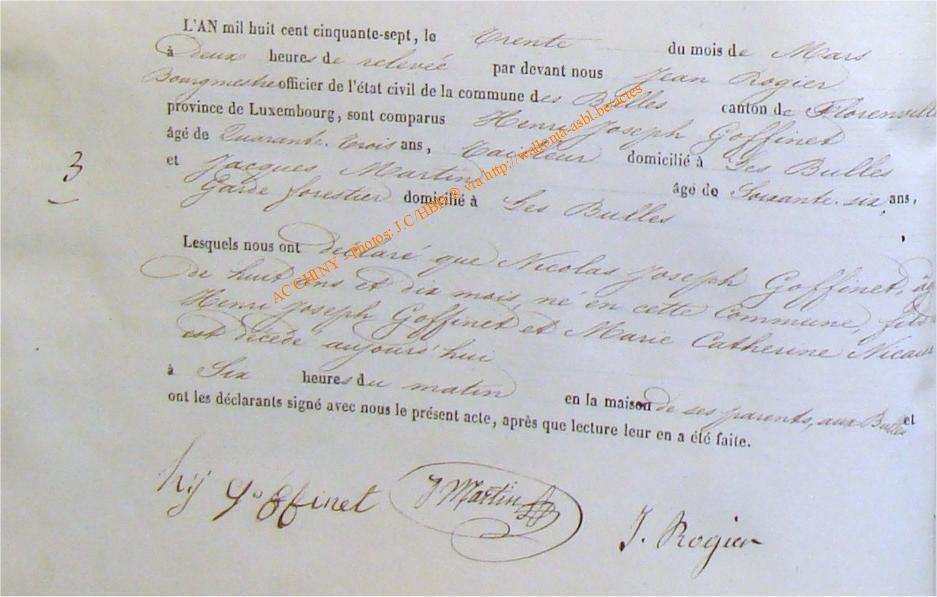 L'AN mil huit cent cinquante-sept, le Trente du mois de Mars
à Deux heures de relevée par devant nous Jean Rogier
Bourgmestre officier de l'état civil de la commune des Bulles canton de Florenville
province de Luxembourg, sont comparus Henri Joseph Goffinet
âgé de Quarante-trois ans, domicilié à Les Bulles
et Jacques Martin âgé de Soixante-six ans,
Garde forestier domicilié à Les Bulles
3
Lesquels nous ont déclaré que Nicolas Joseph Goffinet, 
de huit ans et dix mois, né en cette commune, fils
Henri Joseph Goffinet et Marie Catherine
est décédé aujourd'hui
à Six heures du matin en la maison de ses parents, aux Bulles et
ont les déclarants signé avec nous le présent acte, après que lecture leur en a été faite.
hj Goffinet J Martin J. Rogier
AC CHINY - Photos: J.C/HBH® via http://wallonia-asbl.be/actes